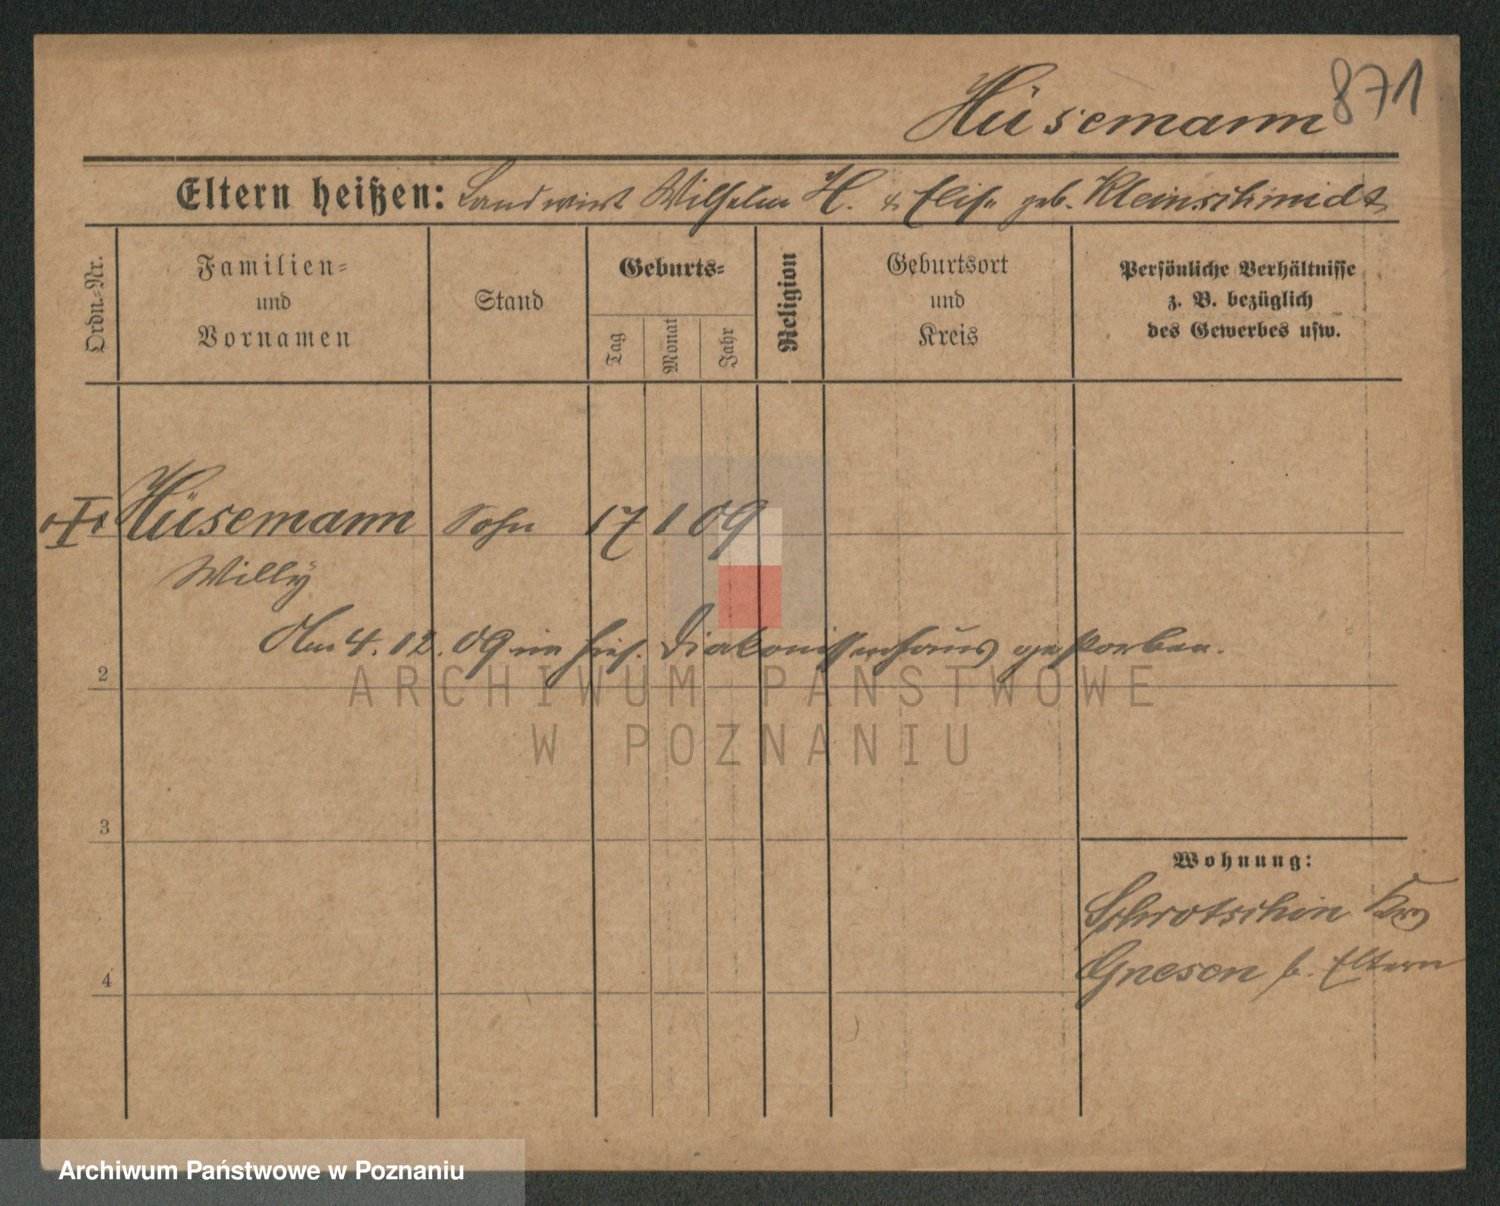 871
Hüsemann
Eltern heißen: Landwirt Wilhelm H. & Elise geb. Kleinschmidt
Ordn.-Nr.
Familien-
und
Vornamen
Stand
Geburts-
Tag
Monat
Jahr
Religion
Geburtsort
und
Kreis
Persönliche Verhältnisse
z. B. bezüglich
des Gewerbes usw.
Hüsemann Sohn 17 1 09
Willy
Am 4. 12. 09 im hies. Diakonissenhaus gestorben.
2
ARCHIWUM PAŃSTWOWE
W POZNANIU
3
Wohnung:
Schrotschin Krs
Gnesen b. Eltern
4
Archiwum Państwowe w Poznaniu